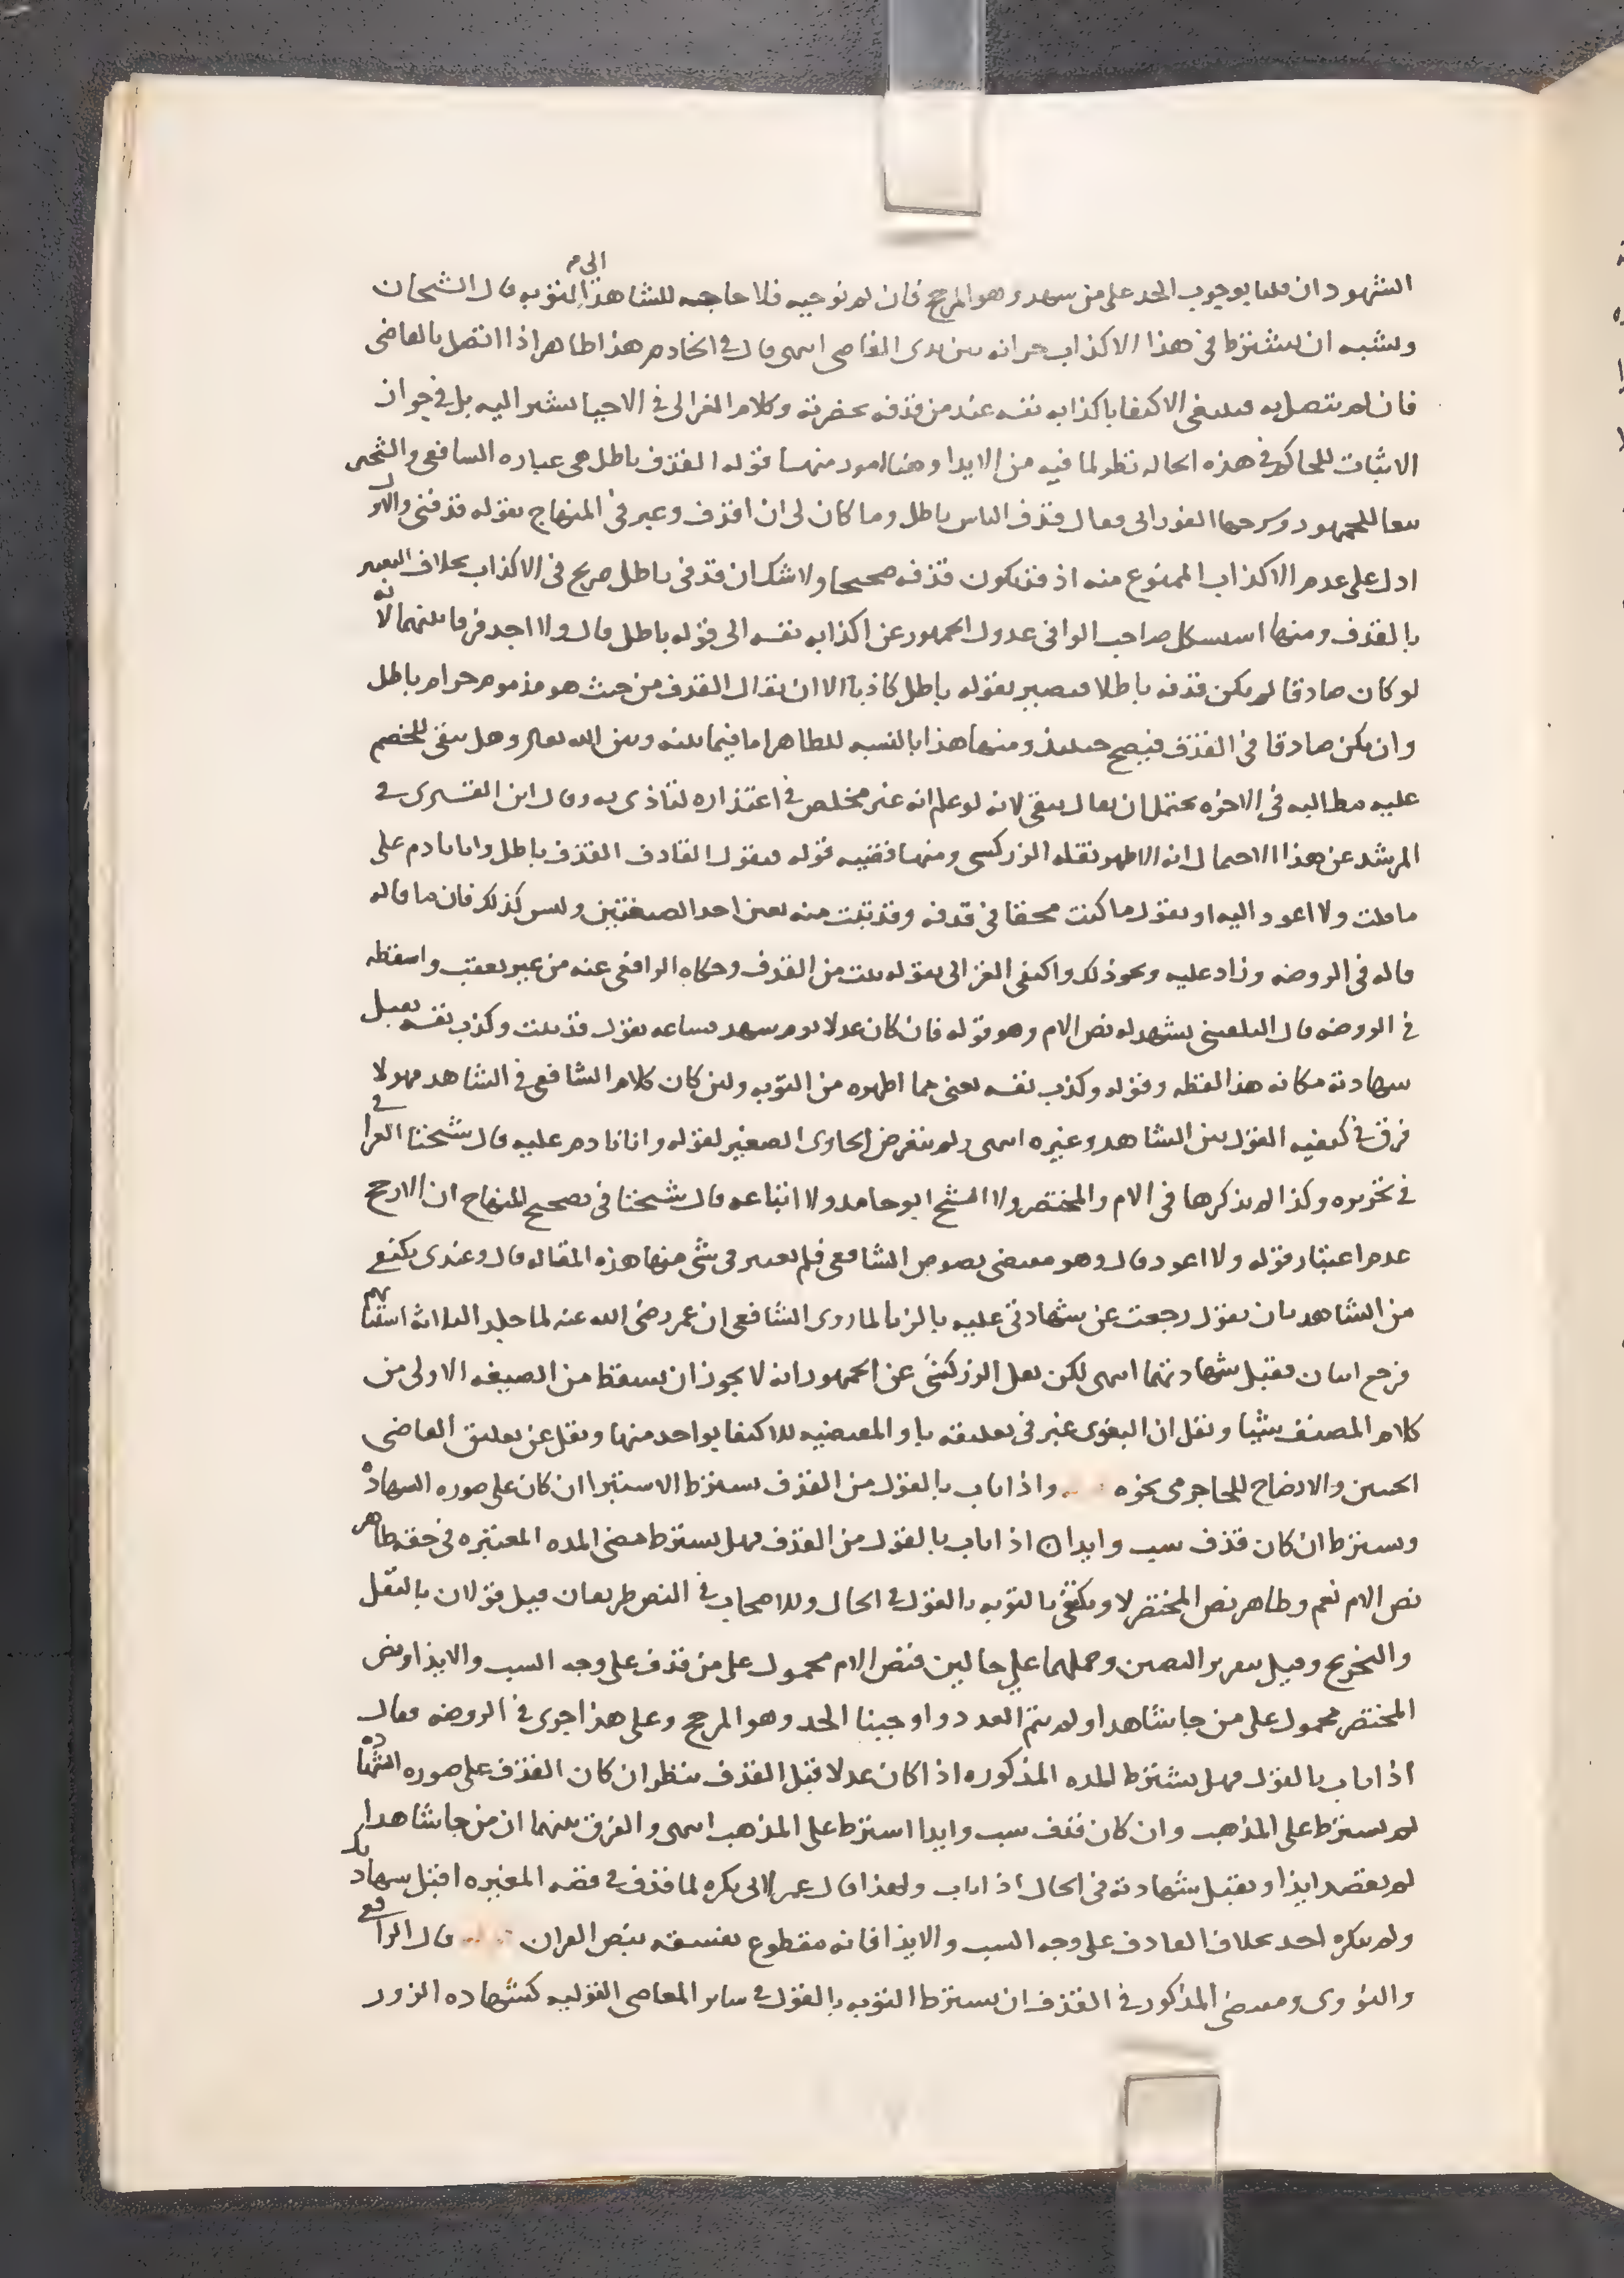 الشهود ان قلنا بوجوب الحد على من شهد وهو المرجح فان لم نوجبه فلا حاجه للشاهد الى التوبه قال الشيخان
ويشبه ان يشترط في هذا الاكذاب جريانه بين يدى القاضي انتهى قال في الخادم هذا ظاهر اذا اتصل بالقاضي
فان لم يتصل به فينبغي الاكتفا باكذابه نفسه عند من قذفه بحضرته وكلام الغزالي في الاحيا يشير اليه بل في جواز
الاثبات للحاكم في هذه الحاله نظر لما فيه من الايذا وهنا امور منها قوله القذف باطل هي عباره الشافعي والشيخين
تبعا للجمهور وشرحها الفوراني فقال قذف الناس باطل وما كان لي ان اقذف وعبر في المنهاج بقوله قذفني والاول
ادل على عدم الاكذاب الممنوع منه اذ قد يكون قذفه صحيحا ولا شك ان قذفي باطل صريح في الاكذاب بخلاف التعبير
بالقذف ومنها استشكل صاحب الوافي عدول الجمهور عن اكذابه نفسه الى قوله باطل قال ولا اجد فرقا بينهما لانه
لو كان صادقا لم يكن قذفه باطلا فيصير بقوله باطل كاذبا الا ان يقال القذف من حيث هو مذموم حرام باطل
وان يكن صادقا في القذف فيصح حينئذ ومنها هذا بالنسبه للظاهر اما فيما بينه وبين الله تعالى وهل يبقى للخصم
عليه مطالبه في الاخره يحتمل ان يقال يبقى لانه لو علم انه غير مخلص في اعتذاره لتاذى به وقال ابن القشيرى في
المرشد عن هذا الاحتمال انه الاظهر نقله الزركشي ومنها قضيه قوله فيقول القاذف القذف باطل وانا نادم على
ما قلت ولا اعود اليه او يقول ما كنت محقا في قذفه وقد تبت منه تعين احد الصيغتين وليس كذلك فان ما قاله
قاله في الروضه وزاد عليه ونحو ذلك واكتفى الغزالي بقوله تبت من القذف وحكاه الرافعي عنه من غير تعقب واسقطه
في الروضه قال البلقيني يشهد له نص الام وهو قوله فان كان عدلا يوم شهد فساعه يقول قد تبت وكذب نفسه تقبل
شهادته مكانه هذا لفظه وقوله وكذب نفسه يعني بما اظهره من التوبه ولئن كان كلام الشافعي في الشاهد فهو لا
فرق في كيفيه القول بين الشاهد وغيره انتهى ولم يتعرض الحاوى الصغير لقوله وانا نادم عليه قال شيخنا العراقي
في تحريره وكذا لم يذكرها في الام والمختصر ولا الشيخ ابو حامد ولا اتباعه قال شيخنا في تصحيح المنهاج ان الارجح
عدم اعتبار قوله ولا اعود قال وهو مقتضى نصوص الشافعي فلم يعتبر في شي منها هذه المقاله قال وعندى يكتفى
من الشاهد بان يقول رجعت عن شهادتي عليه بالزنا لما روى الشافعي ان عمر رضي الله عنه لما جلد الثلاثه استتابهم
فرجع اثنان فقبل شهادتهما انتهى لكن نقل الزركشي عن الجمهور انه لا يجوز ان يسقط من الصيغه الاولى من
كلام المصنف شيئا ونقل ان البغوى عبر في تعليقه باو المقتضيه للاكتفا بواحد منها ونقل عن تعليق القاضي
الحسين والايضاح للجاجرمي نحوه واذا تاب بالقول من القذف يشترط الاستبرا ان كان على صوره الشهاده
ويشترط ان كان قذف سب وايذا اذا تاب بالقول من القذف فهل يشترط مضي المده المعتبره في حقه ظاهر
نص الام نعم وظاهر نص المختصر لا ويكتفي بالتوبه بالقول في الحال وللاصحاب في النص طريقان قيل قولان بالنقل
والتخريج وقيل بتقرير النصين وحملهما على حالين فنص الام محمول على من قذف على وجه السب والايذا ونص
المختصر محمول على من جا شاهدا ولم يتم العدد واوجبنا الحد وهو المرجح وعلى هذا جرى في الروضه فقال
اذا تاب بالقول فهل يشترط المده المذكوره اذا كان عدلا قبل القذف ينظر ان كان القذف على صوره الشهاده
لم يشترط على المذهب وان كان قذف سب وايذا اشترط على المذهب انتهى والفرق بينهما ان من جا شاهدا
لم يقصد ايذا وتقبل شهادته في الحال اذا تاب ولهذا قال عمر لابي بكره لما قذف في قصه المغيره اقبل شهادتك
ولم ينكره احد بخلاف القاذف على وجه السب والايذا فانه مقطوع بفسقه بنص القران قال الرافعي
والنووى ومقتضى المذكور في القذف ان يشترط التوبه بالقول في ساير المعاصي القوليه كشهاده الزور